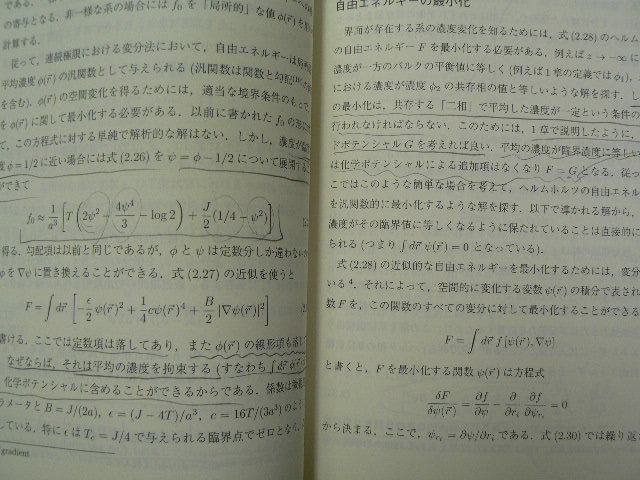 である．非一様な系の場合には f₀ を「局所的」な値 φ(r⃗)
の寄与となる
計算する．
従って，連続極限における変分法において，自由エネルギーは
平均濃度 φ(r⃗) の汎関数として与えられる (汎関数は関数と勾配
を含む)．φ(r⃗) の空間変化を得るためには，適当な境界条件のもとで
を φ(r⃗) に関して最小化する必要がある．以前に書かれた f₀ の形
て，この方程式に対する単純で解析的な解はない．しかし，濃度が
度 φ=1/2 に近い場合には式 (2.26) を ψ = φ − 1/2 について展開する
ができて
f₀ ≈ 1/a³ [T (2ψ² + 4ψ⁴/3 − log 2) + J/2 (1/4 − ψ²)]
得る．勾配項は以前と同じであるが，φ と ψ は定数分しか違わない
φ を ∇ψ に置き換えることができる．式 (2.27) の近似を使うと
F = ∫ dr⃗ [−ε/2 ψ(r⃗)² + 1/4 cψ(r⃗)⁴ + B/2 |∇ψ(r⃗)|²]
書ける．ここでは定数項は落してあり，また φ(r⃗) の線形項も落
なぜならば，それは平均の濃度を拘束する (すなわち ∫ dr⃗ φ(r⃗)
化学ポテンシャルに含めることができるからである．係数は
ラメータと B = J/(2a)，ε = (J − 4T)/a³，c = 16T/(3a³) のよう
している．特に ε は Tc = J/4 で与えられる臨界点でゼロとなり，
gradient
自由エネルギーの最小化
界面が存在する系の濃度変化を知るためには，式 (2.28) のヘルム
の自由エネルギー F を最小化する必要がある．例えば z → −∞ に
濃度が一方のバルクの平衡値に等しく (例えば 1 章の定義では φ₁)，
における濃度が濃度 φ₂ の共存相の値と等しいような解を探す．し
の最小化は，共存する「二相」で平均した濃度が一定という条件の
行われなければならない．このためには，1 章で説明したように，
ドポテンシャル G を考えれば良い．平均の濃度が臨界濃度に等しい
は化学ポテンシャルによる追加項はなくなり F = G となる．従っ
こではこのような簡単な場合を考えて，ヘルムホルツの自由エネル
を汎関数的に最小化するような解を探す．以下で導かれる解から，
濃度がその臨界値に等しくなるように保たれていることは直接的に
られる (つまり ∫ dr⃗ ψ(r⃗) = 0 となっている)．
式 (2.28) の近似的な自由エネルギーを最小化するためには，変分
いる⁴．それによって，空間的に変化する変数 ψ(r⃗) の積分で表され
数 F を，この関数のすべての変分に対して最小化することができる
F = ∫ dr⃗ f[ψ(r⃗), ∇ψ]
と書くと，F を最小化する関数 ψ(r⃗) は方程式
δF/δψ(r⃗) = ∂f/∂ψ − ∂/∂rᵢ ∂f/∂ψrᵢ = 0
から決まる．ここで，ψrᵢ = ∂ψ/∂rᵢ である．式 (2.30) では繰り返